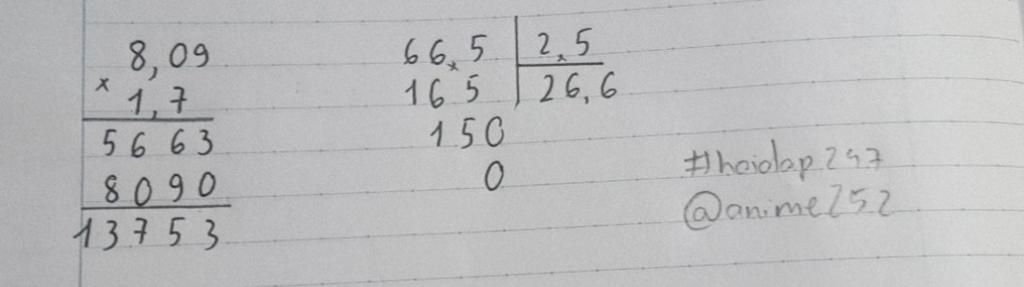 8,09
× 1,7
5663
8090
13753
66,5 2,5
165 26,6
150
0
#hoidap247
@anime252